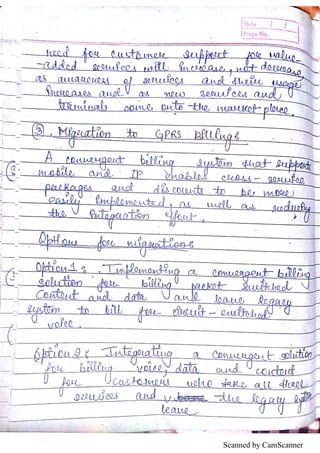 Date / /
Page No.
need for customer support for value-
-added services will increase, not decrease
as awareness of services and their usage
increases and as new services and
terminals come onto the market place.
③. Migration to GPRS billings
A convergent billing system that supports
mobile and IP enables cross-service
packages and discounts to be more
easily implemented, as well as reducing
the integration effort.
Options for migrations
Option1: Implementing a convergent billing
solution for billing packet switched
Content and data and leave legacy
system to bill for circuit-switched
voice.
Option2: Integrating a convergent solution
for billing voice, data and content
for customers who take all three
services and the legacy system
leave
Scanned by CamScanner